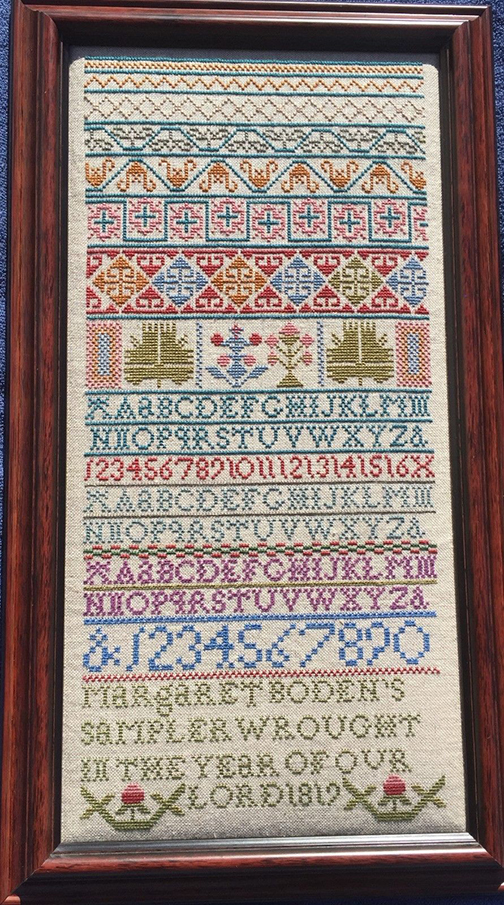 AaBCDEFGHIJKLM
NOPqRSTUVWXYZ&
12345678910111213141516X
AaBCDEFGHIJKLM
NOPqRSTUVWXYZ&
AaBCDEFGHIJKLM
NOPqRSTUVWXYZ&
&1234567890
MaRgaRET BODEN'S
SaMPLER WROUGHT
IN THE YEaR OF OUR
LORD 1819